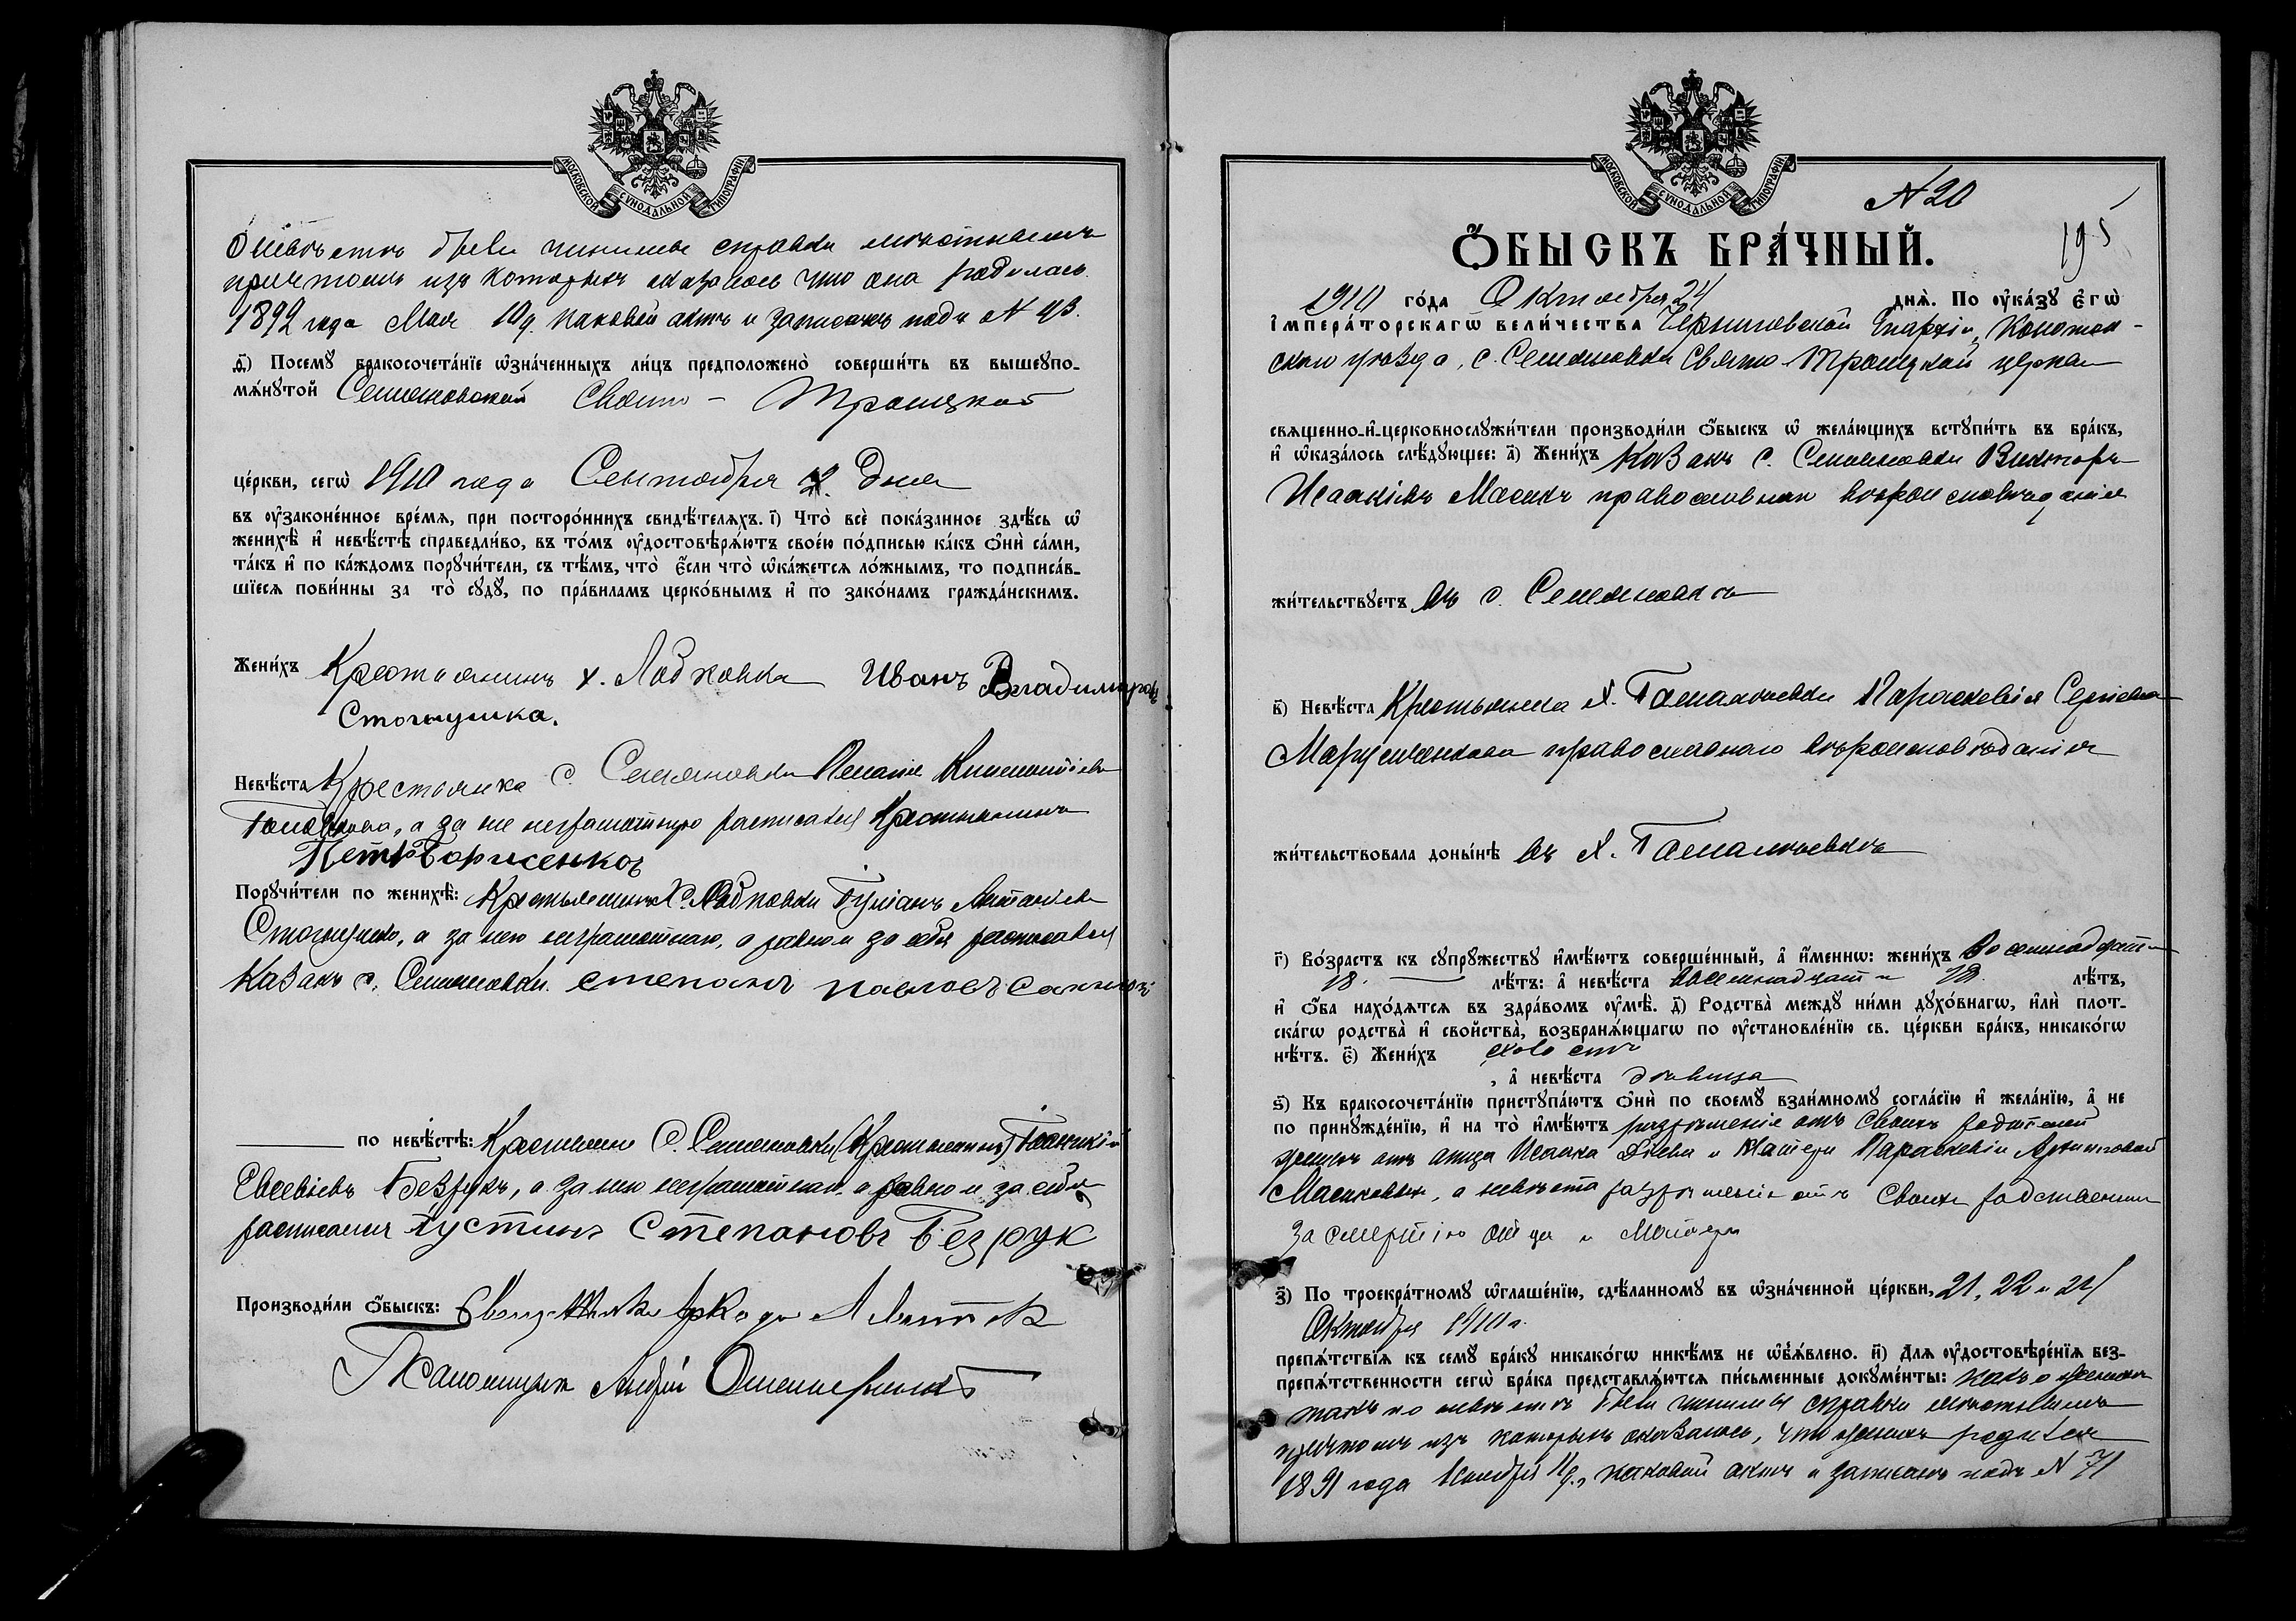 МОСКОВСКОЙ СУНОДАЛЬНОЙ ТИПОГРАФІИ
были чинимы справки мѣстнымъ
причтомъ изъ которыхъ оказалось что она родилась
1892 года Мая 10 д. каковой актъ и записанъ подъ №
д҃і) Посемꙋ бракосочета́нїе ѡ҆зна́ченныхъ ли́цъ предположено̀ соверши́ть въ вышеꙋпо-
мѧ́нꙋтой Семяновской Свято - Троицкой
це́ркви, сегѡ̀ 1910 года Сентября дня
въ ᲂу҆законе́нное вре́мѧ, при посторо́ннихъ свидѣ́телѧхъ. і҃) Что̀ всѐ пока́занное здѣ́сь ѡ҆
женихѣ̀ и҆ невѣ́стѣ справедли́во, въ то́мъ ᲂу҆достовѣрѧ́ютъ свое́ю по́дписью ка́къ ѻ҆нѝ са́ми,
та́къ и҆ по ка́ждомъ порꙋчи́тели, съ тѣ́мъ, что̀ є҆́сли что̀ ѡ҆ка́жетсѧ ло́жнымъ, то подписа́в-
шїесѧ пови́нны за то̀ сꙋдꙋ̀, по пра́виламъ церко́внымъ и҆ по зако́намъ гражда́нскимъ.
Жени́хъ Крестьянинъ х. Лобковка Иванъ Владимировъ
Стогнушка.
Невѣ́ста Крестьянка с. Семяновки
а за нее неграмотную расписался Крестьянинъ
Петръ Борисенко
Порꙋчи́тели по женихѣ̀: Крестьянинъ х. Лобковки
Стогнушко, а за него неграмотнаго, а равно и за себя расписался
Казакъ с. Семяновки. Степанъ Павловъ
по невѣ́стѣ: Крестьянинъ с. Семяновки (Крестьянинъ)
Евсевіевъ Безрукъ, а за него неграмотнаго а равно и за себя
расписался Іустинъ Степановъ Безрук
Производи́ли ѻ҆́быскъ: Священникъ
Псаломщикъ Андрей
МОСКОВСКОЙ СУНОДАЛЬНОЙ ТИПОГРАФІИ
N 20
195
Ѻ҆́БЫСКЪ БРА́ЧНЫЙ.
1910 го́да Октября 24 днѧ̀. По ᲂу҆ка́зꙋ є҆гѡ̀
і҆мпера́торскагѡ вели́чества Черниговской Епархіи, Конотоп-
скаго уѣзда, с. Семяновки Свято-Троицкой церкви
свѧщенно-и҆-церковнослꙋжи́тели производи́ли ѻ҆́быскъ ѡ҆ жела́ющихъ встꙋпи́ть въ бра́къ,
и҆ ѡ҆каза́лось слѣ́дꙋющее: а҃) Жени́хъ Казакъ с. Семяновки Викторъ
Исаакіевъ Масикъ православнаго вѣроисповѣданія
жи́тельствꙋетъ въ с. Семяновкѣ
в҃) Невѣ́ста Крестьянка х. Гамалѣевки Параскевія Сергіева
православнаго вѣроисповѣданія
жи́тельствовала доны́нѣ въ х. Гамалѣевкѣ
г҃) Во́зрастъ къ сꙋпрꙋ́жествꙋ и҆мѣ́ютъ соверше́нный, а҆ и҆́меннѡ: жени́хъ восемнадцати
18. лѣ́тъ: а҆ невѣ́ста восемнадцати 18. лѣ́тъ,
и҆ ѻ҆́ба нахо́дѧтсѧ въ здра́вомъ ᲂу҆мѣ̀. д҃) Родства̀ междꙋ ни́ми дꙋхо́внагѡ, и҆лѝ плот-
ска́гѡ родства̀ и҆ свойства̀, возбранѧ́ющагѡ по ᲂу҆становле́нїю св. це́ркви бра́къ, никако́гѡ
нѣ́тъ. є҃) Жени́хъ холостъ
, а҆ невѣ́ста дѣвица
ѕ҃) Къ бракосочета́нїю пристꙋпа́ютъ ѻ҆нѝ по своемꙋ̀ взаи́мномꙋ согла́сїю и҆ жела́нїю, а҆ не
по принꙋжде́нїю, и҆ на то̀ и҆мѣ́ютъ разрѣшеніе отъ своихъ родителей
женихъ отъ отца Исаака и матери Параскевіи
Масиковыхъ, а невѣста разрѣшеніе отъ своихъ родственниковъ
за смертію отца и матери
з҃) По троекра́тномꙋ ѡ҆глаше́нїю, сдѣ́ланномꙋ въ ѡ҆зна́ченной це́ркви, 21, 22 и 24
Октября 1910 г.
препѧ́тствїѧ къ семꙋ̀ бра́кꙋ никако́гѡ никѣ́мъ не ѡ҆б̾ѧ́влено. и҃) Длѧ ᲂу҆достовѣре́нїѧ без-
препѧ́тственности сегѡ̀ бра́ка представлѧ́ютсѧ пи́сьменные докꙋме́нты: какъ о женихѣ
такъ и о невѣстѣ были чинимы справки мѣстнымъ
причтомъ изъ которыхъ оказалось, что женихъ родился
1891 года Ноября 11 д., каковой актъ и записанъ подъ N 71